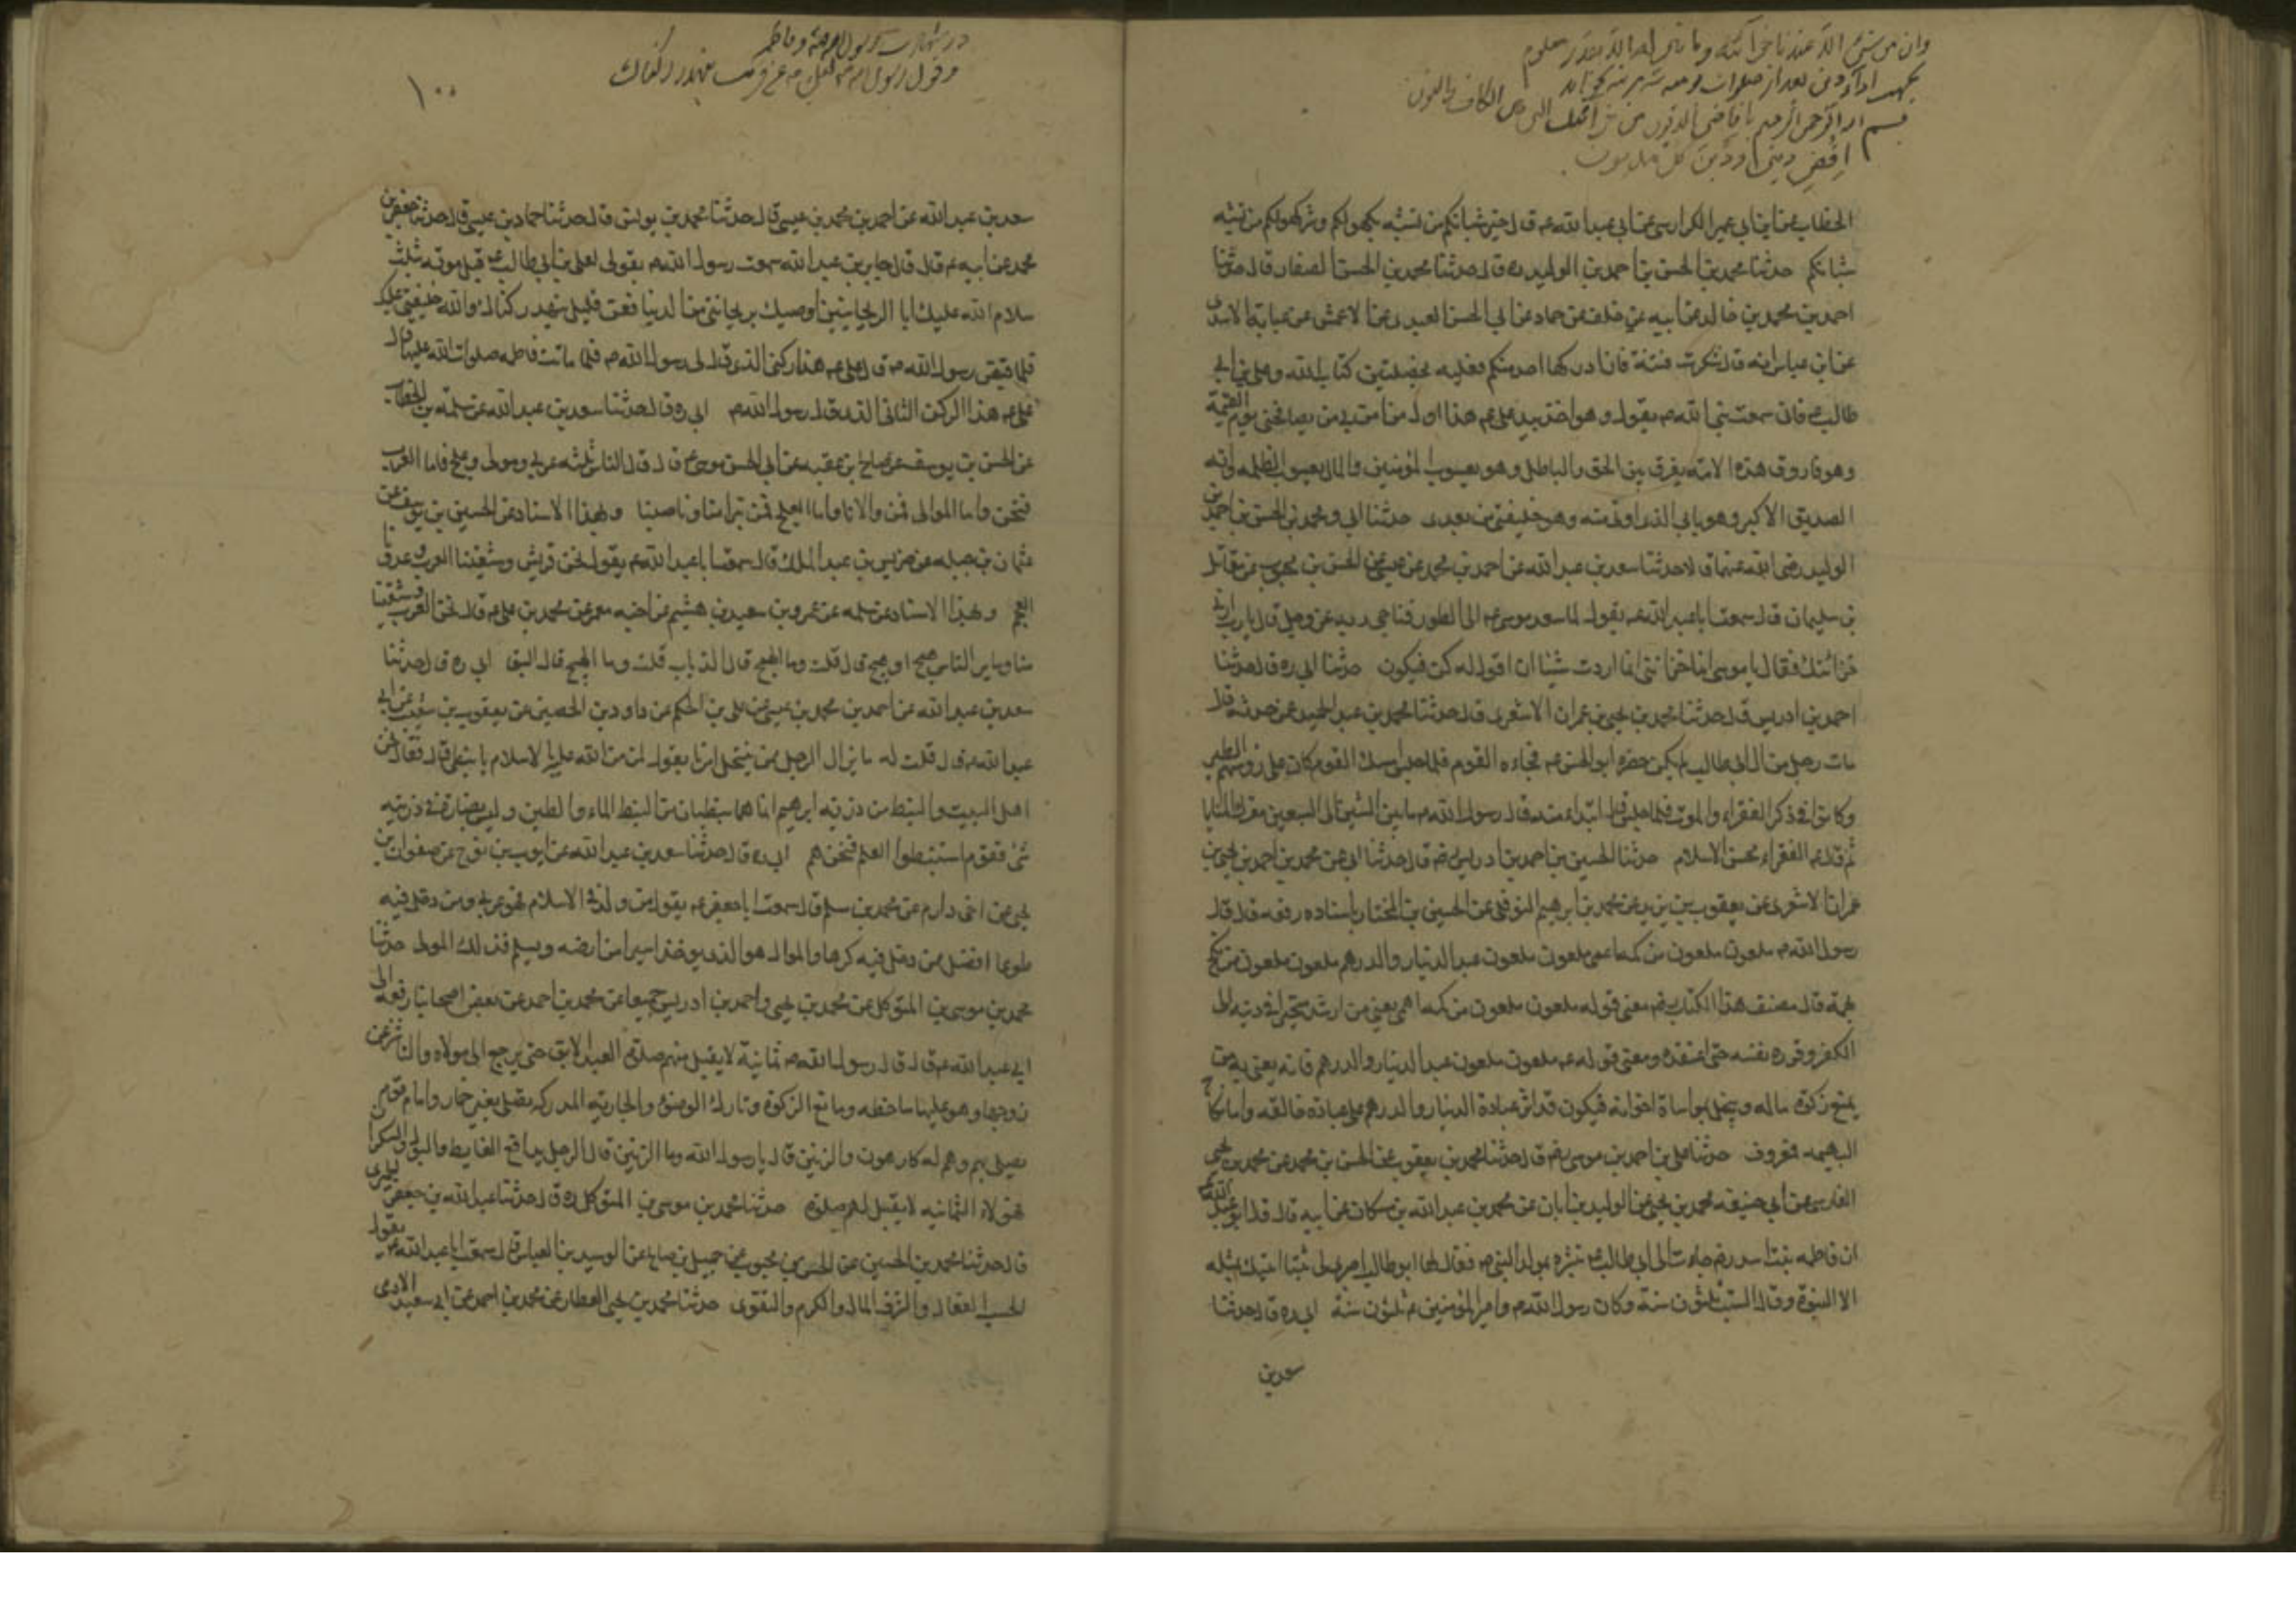 وان من شیء الا عندنا خزائنه وما ننزله الا بقدر معلوم
بجهت اداء دین بعد از صلوات
بسم الله الرحمن الرحیم یا قاضی الدیون من خزائنک التی بین الکاف والنون
اقض دینی ودین کل مدیون
الخطاب عن ابن ابی عمیر الکراسی عن ابی عبدالله ع قال خیر شبابکم من تشبه بکهولکم وشر کهولکم من تشبه
بشبابکم حدثنا محمد بن الحسن بن احمد بن الولید ره قال حدثنا محمد بن الحسن الصفار قال حدثنا
احمد بن محمد بن خالد عن ابیه عن خلف بن حماد عن ابی الحسن العبدی عن الاعمش عن عبایة الاسدی
عن ابن عباس انه قال ستکون فتنة فان ادرکها احد منکم فعلیه بخصلتین کتاب الله وعلی بن ابی
طالب ع فانی سمعت نبی الله ص یقول وهو اخذ بید علی ع هذا اول من امن بی من یصافحنی یوم القیمة
وهو فاروق هذه الامة یفرق بین الحق والباطل وهو یعسوب المؤمنین والمال یعسوب الظلمه وانه
الصدیق الاکبر وهو بابی الذی اوتی منه وهو خلیفتی من بعدی حدثنا ابی ومحمد بن الحسن بن احمد بن
الولید رضی الله عنهما قالا حدثنا سعد بن عبدالله عن احمد بن محمد بن عیسی عن الحسن بن محبوب عن مقاتل
بن سلیمان قال سمعت ابا عبدالله ع یقول لما صعد موسی ع الی الطور فناجی ربه عز وجل قال یا رب ارنی
خزائنک فقال یا موسی انما خزائنی اذا اردت شیئا ان اقول له کن فیکون حدثنا ابی ره قال حدثنا
احمد بن ادریس قال حدثنا محمد بن یحیی بن عمران الاشعری قال حدثنا محمد بن عبد الحمید عمن حدثه قال
مات رجل من ال ابی طالب لم یکن حضره ابو الحسن ع فجاءه القوم فلما جلس امسک القوم کان علی رؤسهم الطیر
وکانوا فی ذکر الفقراء والموت فلما جلس قال ابتداء منه قال رسول الله ص ما بین الستین الی السبعین معترک المنایا
ثم قال ع الفقراء محن الاسلام حدثنا الحسین بن احمد بن ادریس رض قال حدثنا ابی عن محمد بن احمد بن یحیی بن
عمران الاشعری عن یعقوب بن یزید عن محمد بن ابرهیم النوفلی عن الحسین بن المختار باسناده رفعه قال قال
رسول الله ص ملعون ملعون من کمه اعمی ملعون ملعون من عبد الدینار والدرهم ملعون ملعون من نکح
بهیمة قال مصنف هذا الکتاب رض معنی قوله ملعون ملعون من کمه اعمی یعنی من ارشد متحیرا فی دینه الی
الکفر وقرره فی نفسه حتی اعتقده ومعنی قوله ع ملعون ملعون من عبد الدینار والدرهم فانه یعنی به من
یمنع زکوة ماله ویبخل بمواساة اخوانه فیکون قد اثر عبادة الدینار والدرهم علی عبادة خالقه واما نکاح
البهیمه فمعروف حدثنا علی بن احمد بن موسی رض قال حدثنا محمد بن یعقوب عن الحسن بن محمد عن محمد بن یحیی
الفارسی عن ابی حنیفه محمد بن یحیی عن الولید بن ابان عن محمد بن عبدالله بن مسکان عن ابیه قال قال ابو عبدالله ع
ان فاطمه بنت اسد رض جاءت الی ابی طالب ع تبشره بمولد النبی ص فقال لها ابو طالب اصبری لی سبتا اتیک بمثله
الا النبوة وقال السبت ثلثون سنة وکان رسول الله ص وامیر المؤمنین ع ثلثون سنة ابی ره قال حدثنا
سعد بن
در شهادت رسول الله ص وفاطمه
۱۰۰
سعد بن عبدالله عن احمد بن محمد بن عیسی قال حدثنا محمد بن یونس قال حدثنا حماد بن عیسی قال حدثنا جعفر بن
محمد عن ابیه ع قال قال جابر بن عبدالله سمعت رسول الله ص یقول لعلی بن ابی طالب ع قبل موته بثلث
سلام الله علیک ابا الریحانتین اوصیک بریحانتی من الدنیا فعن قلیل ینهد رکناک والله خلیفتی علیک
فلما قبض رسول الله ص قال علی ع هذا رکنی الذی قال لی رسول الله ص فلما ماتت فاطمه صلوات الله علیها قال
علی ع هذا الرکن الثانی الذی قال رسول الله ص ابی ره قال حدثنا سعد بن عبدالله عن سلمة بن الخطاب
عن الحسن بن یوسف عن صالح بن عقبه عن ابی الحسن موسی ع قال قال الناس ثلثه عربی ومولی وعلج فاما العرب
فنحن واما الموالی فمن والانا واما العلج فمن تبرأ منا وناصبنا وبهذا الاسناد عن الحسین بن یوسف عن
عثمان بن جبله عن ضریس بن عبد الملک قال سمعت ابا عبدالله ع یقول نحن قریش وشیعتنا العرب وعدونا
العجم وبهذا الاسناد عن سلمه عن عمرو بن سعید بن هشیم عن اخیه معمر عن محمد بن علی ع قال نحن العرب وشیعتنا
منا وسایر الناس همج او هبج قال قلت وما الهمج قال الذباب قلت وما الهبج قال البق ابی ره قال حدثنا
سعد بن عبدالله عن احمد بن محمد بن عیسی عن علی بن الحکم عن داود بن الحصین عن یعقوب بن شعیب عن ابی
عبدالله ع قال قلت له ما یزال الرجل ممن ینتحل امرنا یقول لمن من الله علیه بالاسلام یا نبطی قال فقال نحن
اهل البیت والنبط من ذریة ابرهیم انما هما نبطیان من النبط الماء والطین ولیس بضاره فی ذریته
شیء فقوم استنبطوا العلم فنحن هم ابی ره قال حدثنا سعد بن عبدالله عن ایوب بن نوح عن صفوان بن
یحیی عن اخی دارم عن محمد بن مسلم قال سمعت ابا جعفر ع یقول من ولد فی الاسلام فهو عربی ومن دخل فیه
طوعا افضل ممن دخل فیه کرها والمولی هو الذی یوخذ اسیرا من ارضه ویسلم فذلک المولی حدثنا
محمد بن موسی بن المتوکل عن محمد بن یحیی واحمد بن ادریس جمیعا عن محمد بن احمد عن بعض اصحابنا رفعه الی
ابی عبدالله ع قال قال رسول الله ص ثمانیة لا یقبل منهم صلوة العبد الابق حتی یرجع الی مولاه والناشز عن
زوجها وهو علیها ساخط ومانع الزکوة وتارک الوضوء والجاریه المدرکه یصلی بغیر خمار وامام قوم
یصلی بهم وهم له کارهون والزنین قال یا رسول الله وما الزنین قال الرجل یدافع الغایط والبول والسکران
فهولاء الثمانیه لا یقبل لهم صلوة حدثنا محمد بن موسی بن المتوکل ره قال حدثنا عبدالله بن جعفر الحمیری
قال حدثنا محمد بن الحسین عن الحسن بن محبوب عن جمیل بن صالح عن الولید بن العباس قال سمعت ابا عبدالله ع یقول
الحسب الفعال والشرف المال والکرم والتقوی حدثنا محمد بن یحیی العطار عن محمد بن احمد عن ابی سعید الادمی